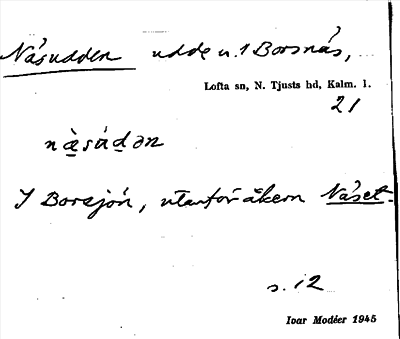 Näsudden udde u. 1 Borsnäs,
Lofta sn, N. Tjusts hd, Kalm. l.
21
nä̀súdən
I Borsjön, utanför åkern Näset.
s. 12
Ivar Modéer 1945